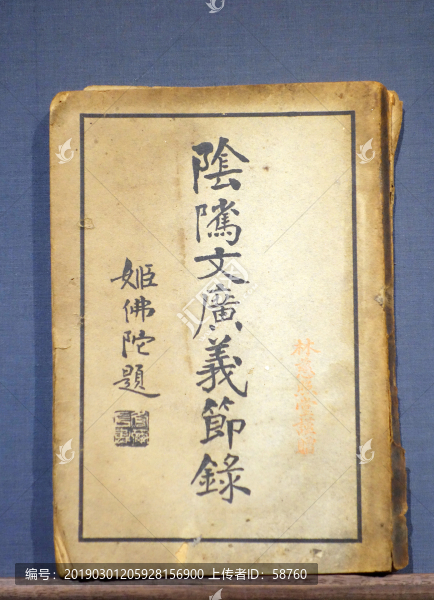 陰隲文廣義節錄
姬佛陀題
编号：20190301205928156900 上传者ID：58760